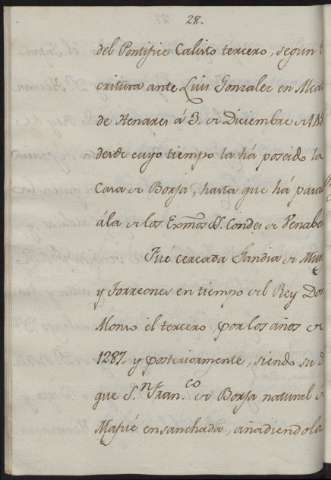 28.
del Pontifice Calisto tercero, segun
critura ante Luis Gonzalez en
de Henares á 3. de Diciembre de
desde cuyo tiempo la há poseido la
Casa de Borja, hasta que há
á la de los Exmôs SS. Condes de
Fue cercada Gandia de
y Torreones en tiempo del Rey
Alonso el tercero, por los años de
1287. y posteriormente, siendo su
que S.ⁿ Fran.ᶜᵒ de Borja natural
ensanchada, añadiendola